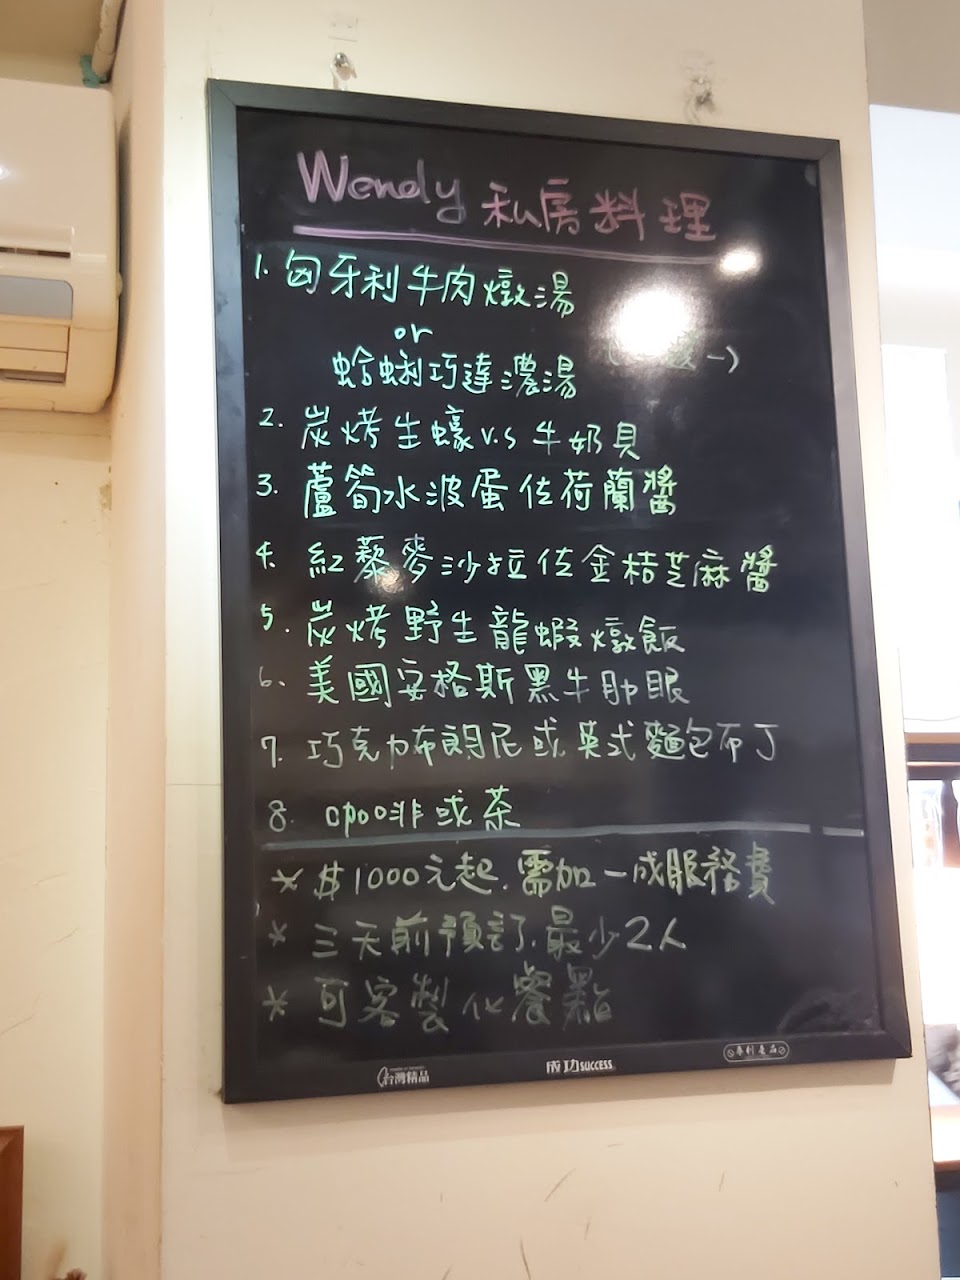 Wendy 私房料理
1. 匈牙利牛肉燉湯
or
蛤蜊巧達濃湯 一)
2. 炭烤生蠔 v.s 牛奶貝
3. 蘆筍水波蛋佐荷蘭醬
4. 紅藜麥沙拉佐金桔芝麻醬
5. 炭烤野生龍蝦燉飯
6. 美國安格斯黑牛肋眼
7. 巧克力布朗尼或英式麵包布丁
8. 咖啡或茶
* $1000元起.需加一成服務費
* 三天前預訂.最少2人
* 可客製化餐點
台灣精品
成功SUCCESS
專利產品